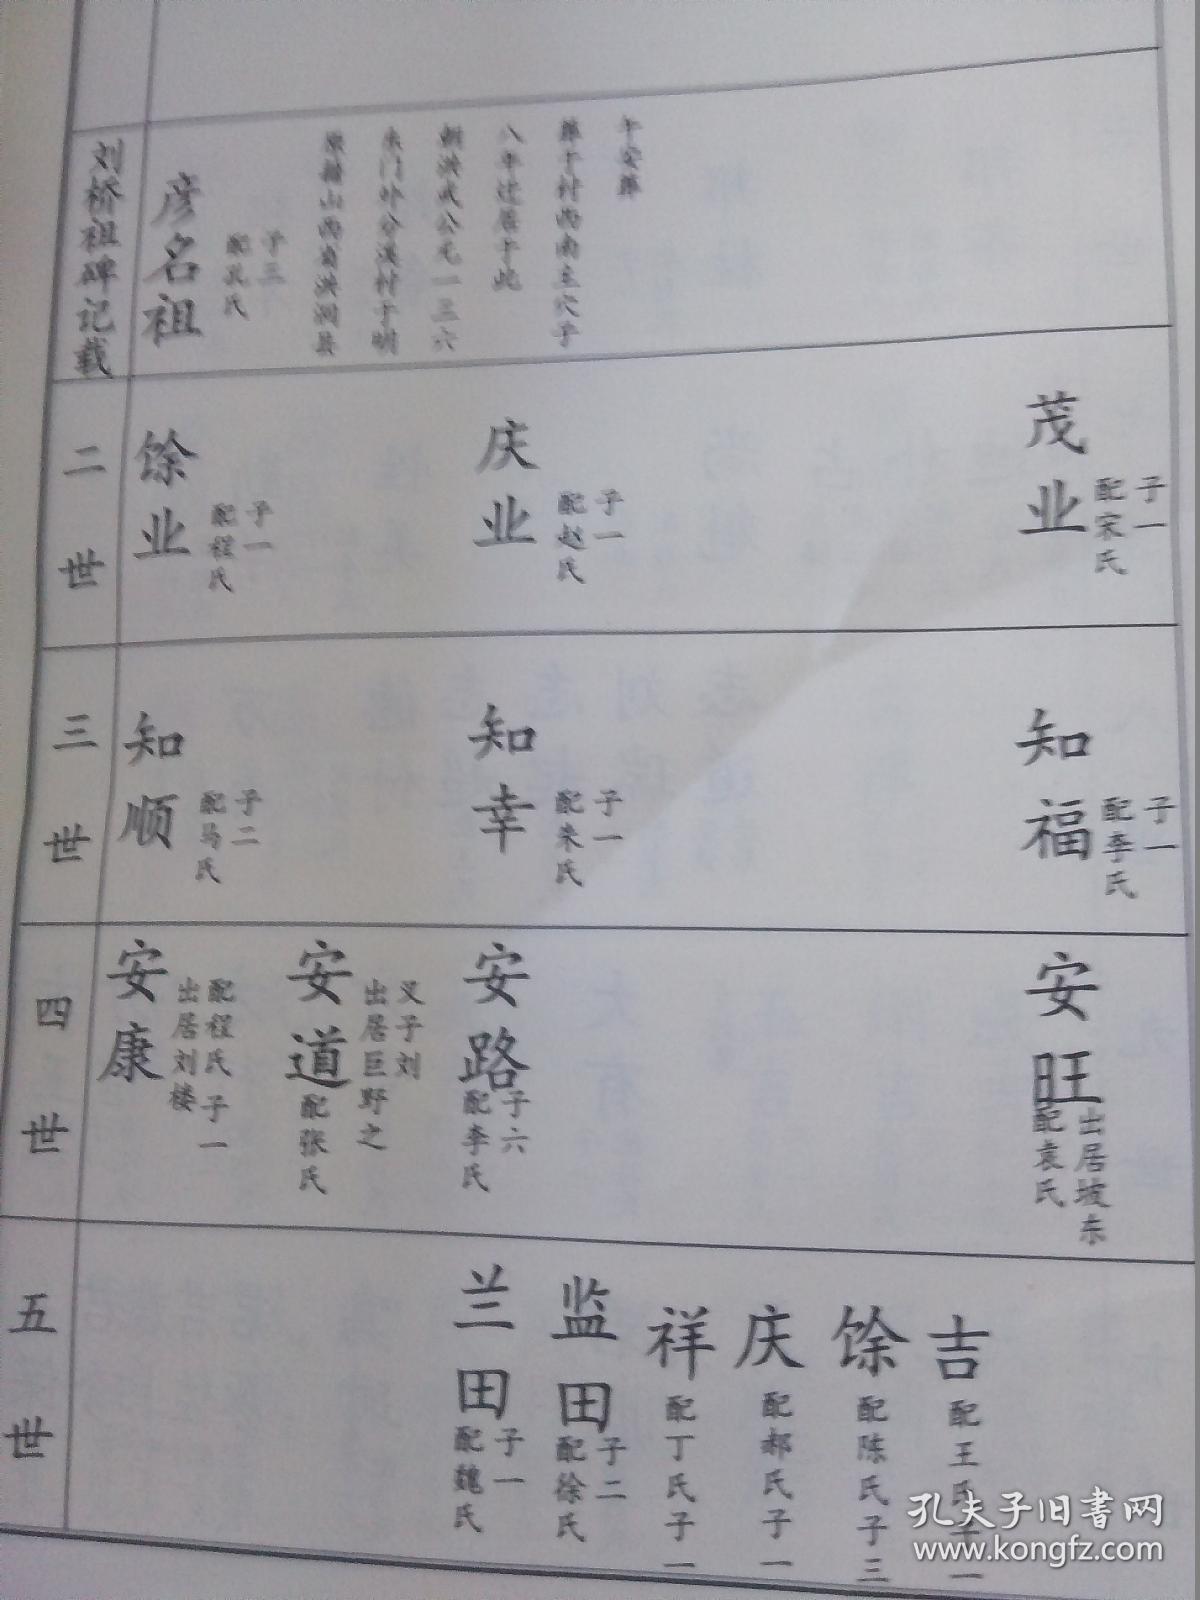 刘桥祖碑记载
彦名祖
配孔氏
子三
原籍山西省洪洞县
东门外分漠村于明
朝洪武公元一三六
八年迁居于此
葬于村西南主穴子
午安葬
二世
馀业
配程氏
子一
庆业
配赵氏
子一
茂业
配宋氏
子一
三世
知顺
配马氏
子二
知幸
配朱氏
子一
知福
配李氏
子一
四世
安康
出居刘楼
配程氏 子一
安道
配张氏
出居巨野之
义子刘
安路
配李氏
子六
安旺
配袁氏
出居坡东
五世
兰田
配魏氏
子一
监田
配徐氏
子二
祥
配丁氏子一
庆
配郝氏子一
馀
配陈氏子三
吉
配王氏子一
孔夫子旧书网
www.kongfz.com